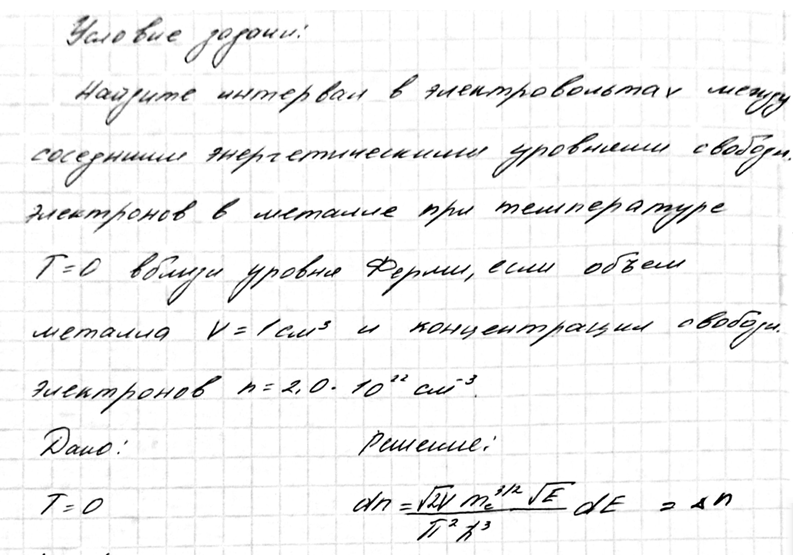 Условие задачи:
Найдите интервал в электровольтах между
соседними энергетическими уровнями свободн.
электронов в металле при температуре
T=0 вблизи уровня Ферми, если объем
металла V=1см³ и концентрация свободн.
электронов n=2,0·10²² см⁻³.
Дано: Решение:
T=0 dn = √2V mₑ^3/2 √E / π² ħ³ dE = Δn